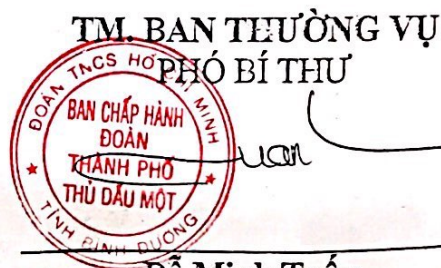 TM. BAN THƯỜNG VỤ
PHÓ BÍ THƯ
ĐOÀN TNCS HỒ CHÍ MINH
BAN CHẤP HÀNH
ĐOÀN
THÀNH PHỐ
THỦ DẦU MỘT
TỈNH BÌNH DƯƠNG
Đỗ Minh